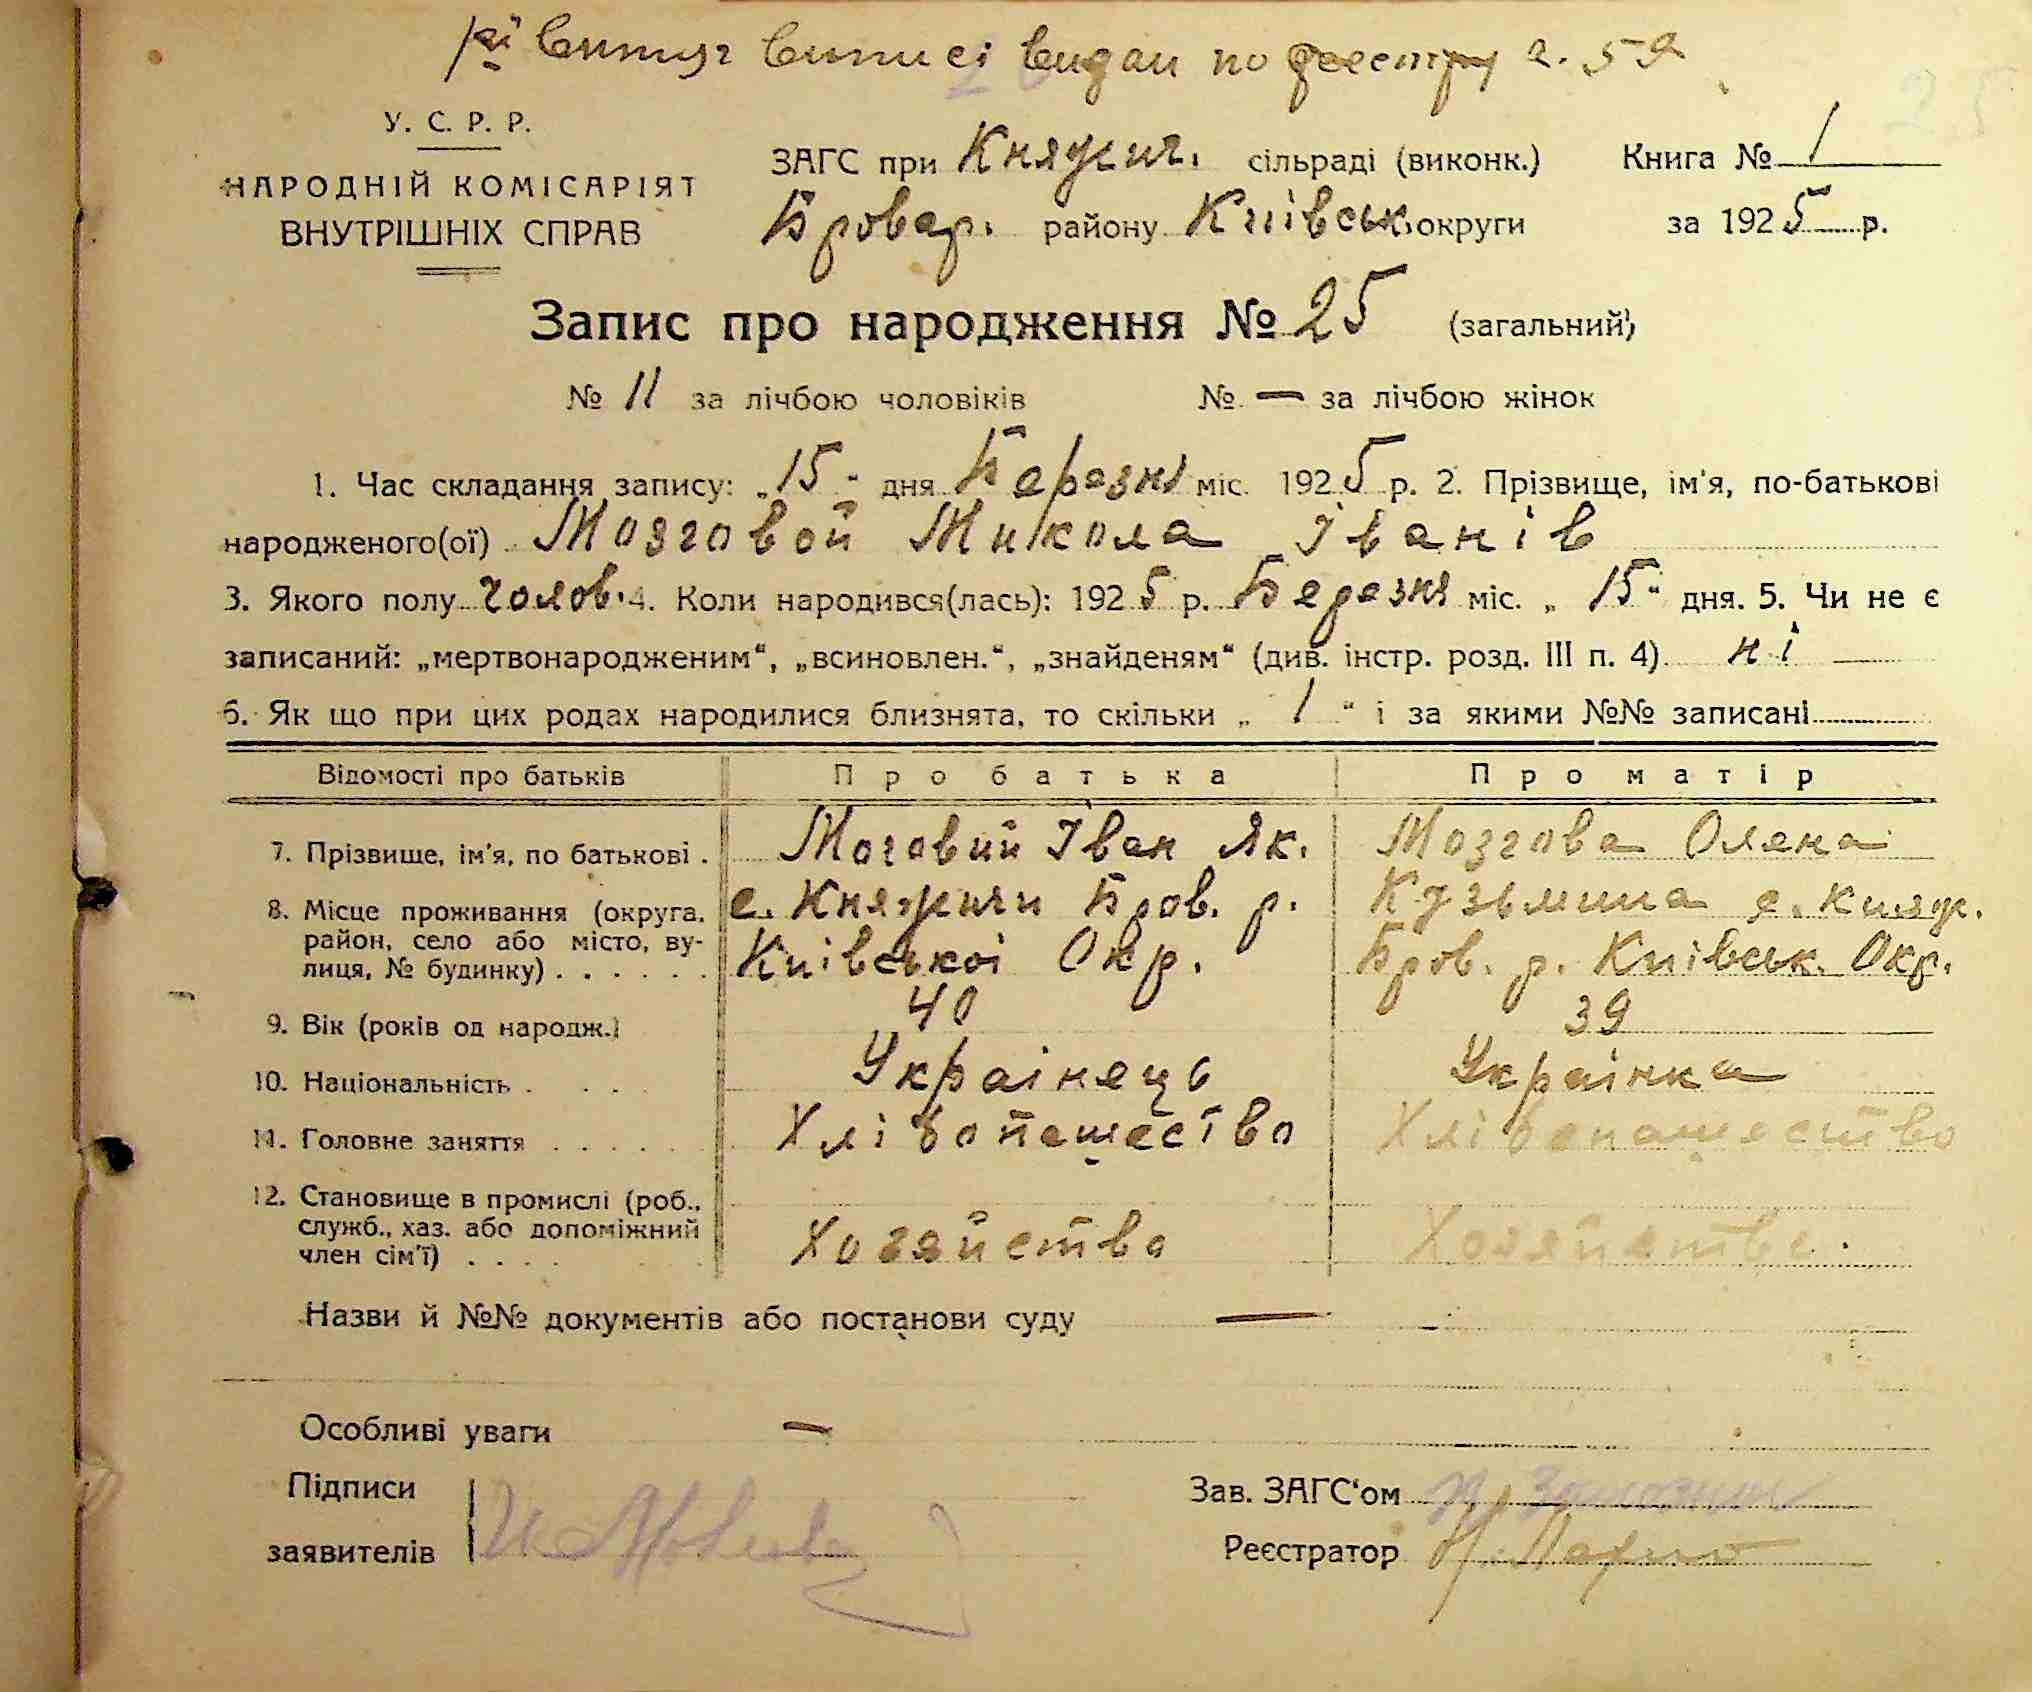 витяг виписі видан по реєстру г. 59
У. С. Р. Р.
НАРОДНІЙ КОМІСАРІЯТ
ВНУТРІШНІХ СПРАВ
ЗАГС при Княжич. сільраді (виконк.) Книга № 1
Бровар. району Київськ. округи за 1925 р.
Запис про народження № 25 (загальний)
№ 11 за лічбою чоловіків № — за лічбою жінок
1. Час складання запису: „15“ дня Березня міс. 1925 р. 2. Прізвище, ім'я, по-батькові
народженого(ої) Мозговой Микола Іванів
3. Якого полу чолов. 4. Коли народився(лась): 1925 р. Березня міс. „15“ дня. 5. Чи не є
записаний: „мертвонародженим“, „всиновлен.“, „знайденям“ (див. інстр. розд. III п. 4) ні —
6. Як що при цих родах народилися близнята, то скільки „ 1 “ і за якими №№ записані
Відомості про батьків Про батька Про матір
7. Прізвище, ім'я, по батькові . Мозовий Іван Як. Мозгова Олена
8. Місце проживання (округа, с. Княжичи Бров. р. Кузьмина с. Княж.
район, село або місто, ву-
лиця, № будинку) . . . . . . Київськоі Окр. Бров. р. Київськ. Окр.
9. Вік (років од народж.) 40 39
10. Національність . . . Украінець Украінка
11. Головне заняття . . . . . Хлібопашество Хлібопашество
12. Становище в промислі (роб.,
служб., хаз. або допоміжний
член сім'ї) . . . . Хозяйство Хозяйство.
Назви й №№ документів або постанови суду —
Особливі уваги —
Підписи
заявителів
Зав. ЗАГС'ом
Реєстратор